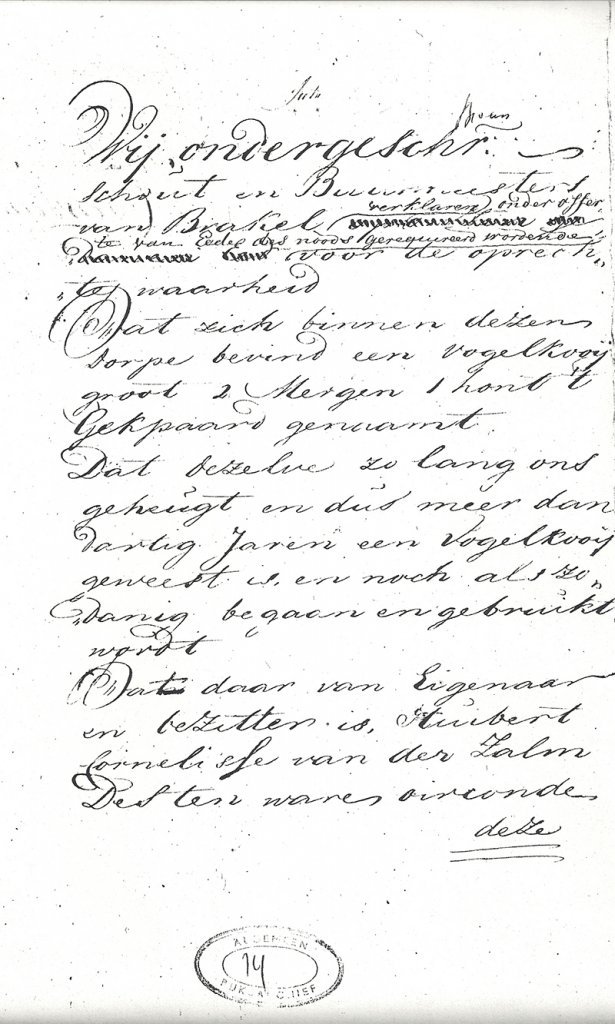 Wij ondergeschr:
Schout en Buurmeesters
verklaren onder offer
van Brakel
te van Eede des noods gerequireerd wordende
voor de oprech„
„te waarheid
Dat zich binnen dezen
dorpe bevind een Vogelkooij
groot 2 Mergen 1 hont 't
Gekpaard genaamt
Dat dezelve zo lang ons
geheugt en dus meer dan
dartig Jaren een Vogelkooij
geweest is, en noch als zo„
„danig begaan en gebruikt
wordt
Dat daar van Eigenaar
en bezitter is, Huibert
Cornelisse van der Zalm
Des ten ware oirconde
deze
ALGEMEEN
14
RIJKSARCHIEF